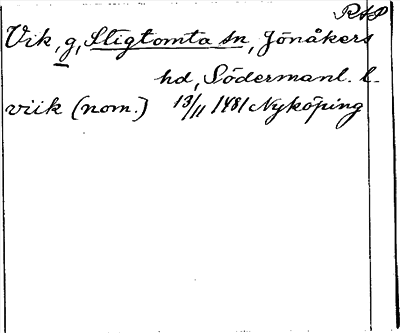 RAP
Vik, g, Stigtomta sn, Jönåkers
hd, Södermanl. l.
viik (nom.) 13/11 1481 Nyköping